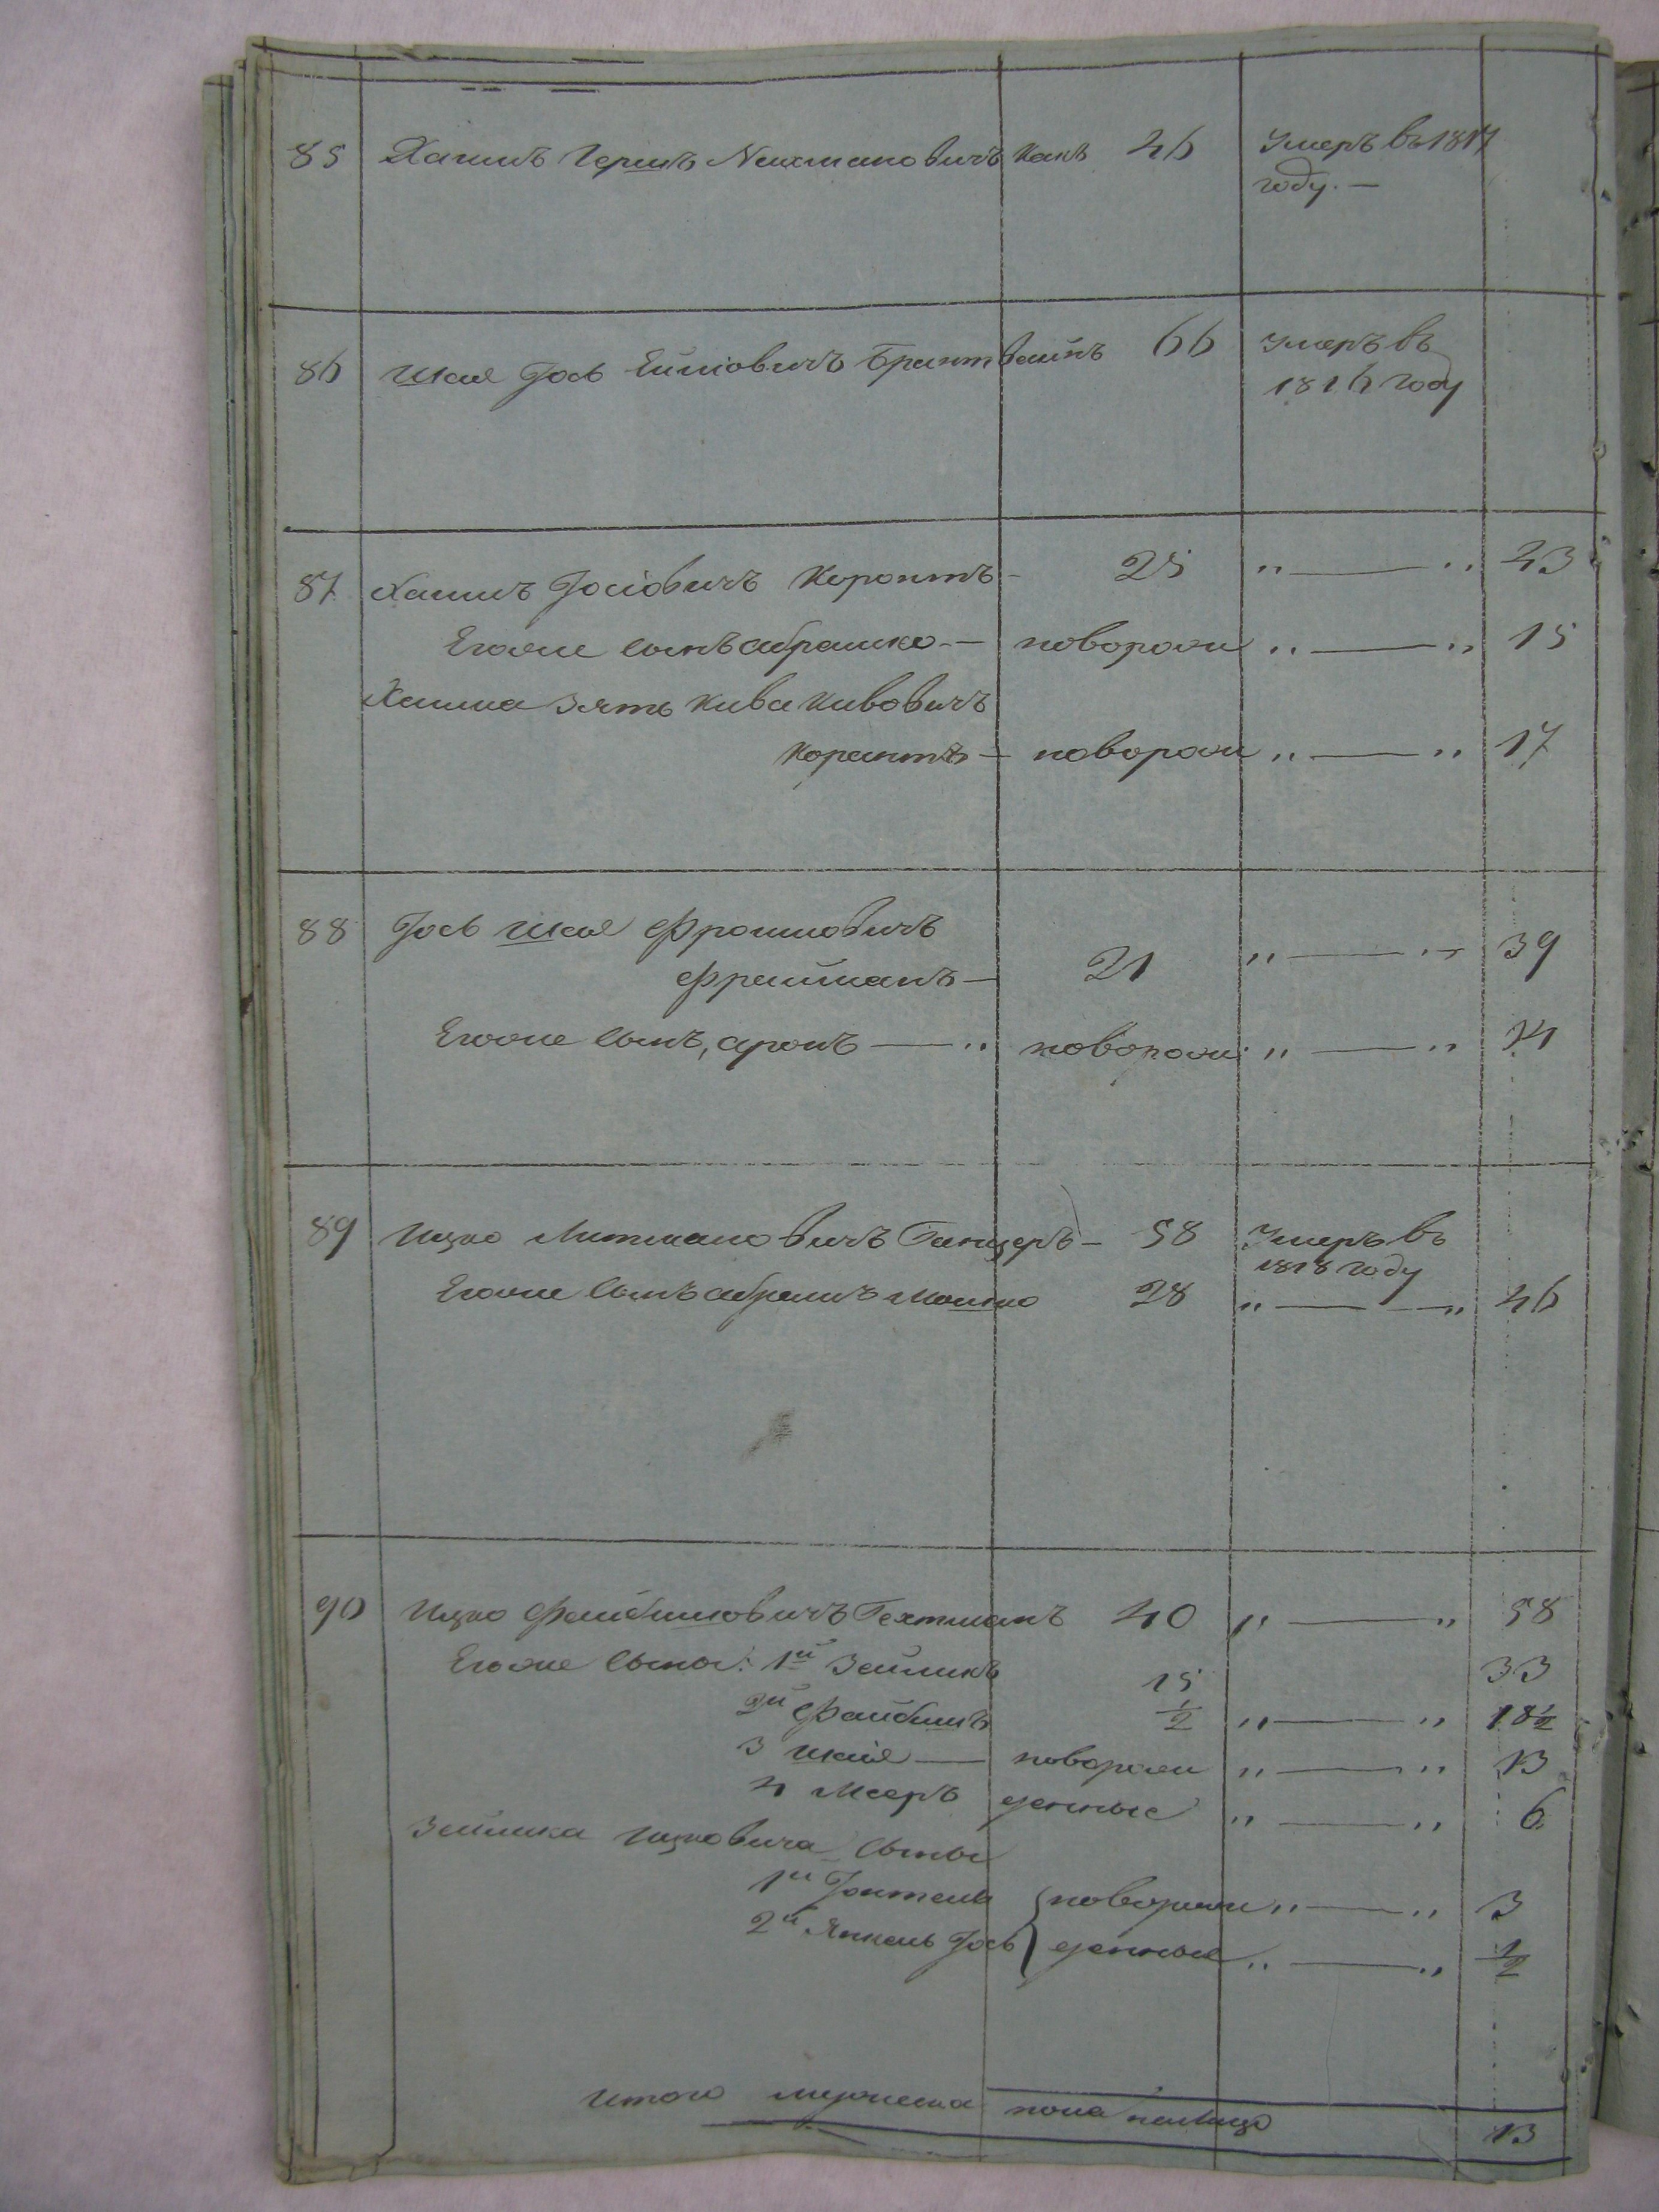 85 Хаимъ Гершъ Нихмановичъ Канъ 46 Умеръ въ 1817
году. —
86 Шая Іось Еййновичъ Брантвайнъ 66 Умеръ въ
1816 году
87 Хаимъ Іосіовичъ Корантъ — 25 „ — „ 43
Егоже сынъ Абрашко — новорож „ — „ 15
Хаима зять Кива Кивовичъ
Корантъ — новорож „ — „ 17
88 Іось Шая Фроимовичъ
Фрайманъ — 21 „ — „ 39
Егоже сынъ, Аронъ — „ новорож: „ — „ 14
89 Ицко Литмановичъ Танцеръ — 58 Умеръ въ
1818 году
Егоже сынъ Абрамъ Мошко 28 „ — „ 46
90 Ицко Файбишовичъ Гехтманъ 40 „ — „ 58
Егоже сыны: 1й Зейликъ 15 33
2й Файбишъ ½ „ — „ 18½
3 Шая — новорож „ — „ 13
4 Мееръ денные „ — „ 6
Зейлика Ицковича сыны
1й новорож „ — „ 3
2й Янкель Іось денные „ — „ ½
Итого мужеска пола налицо 13